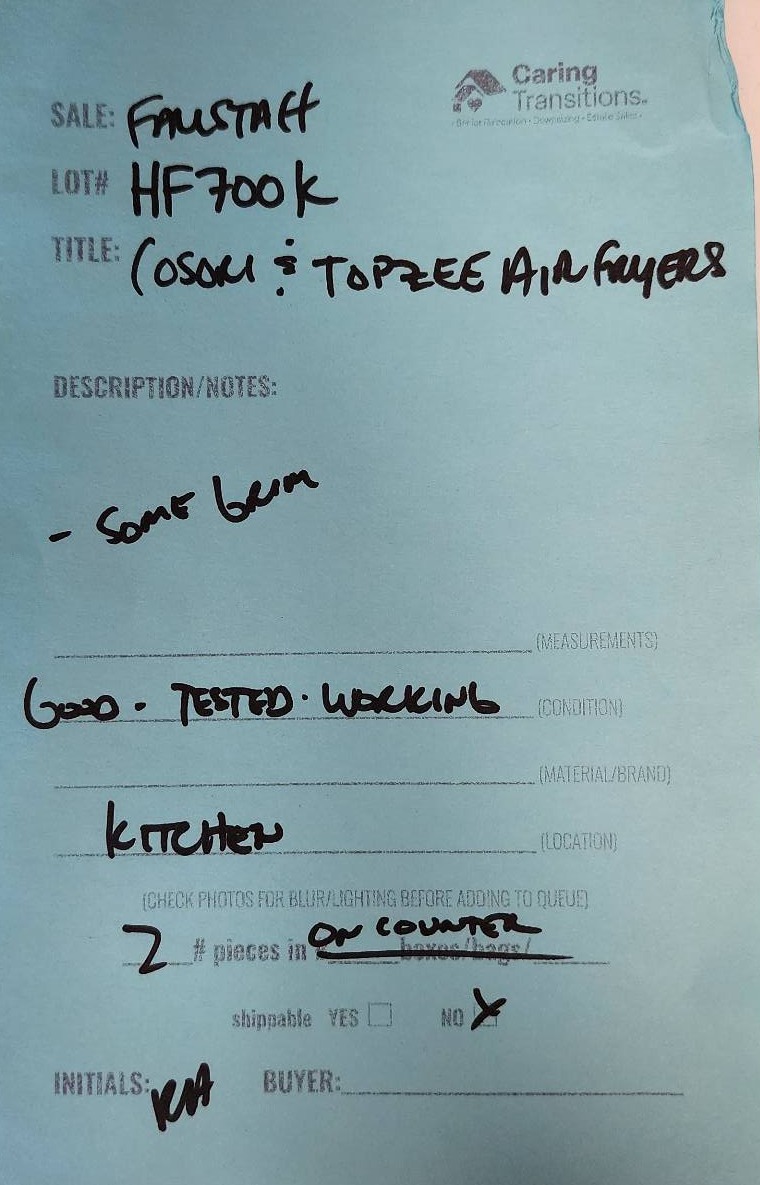 Caring
Transitions
· Senior Relocation · Downsizing · Estate Sales ·
SALE: FALLSTAFF
LOT# HF700K
TITLE: COSORI & TOPZEE AIR FRYERS
DESCRIPTION/NOTES:
- SOME GRIM
(MEASUREMENTS)
GOOD - TESTED · WORKING (CONDITION)
(MATERIAL/BRAND)
KITCHEN (LOCATION)
(CHECK PHOTOS FOR BLUR/LIGHTING BEFORE ADDING TO QUEUE)
2 # pieces in ON COUNTER boxes/bags/
shippable YES NO X
INITIALS: BUYER: